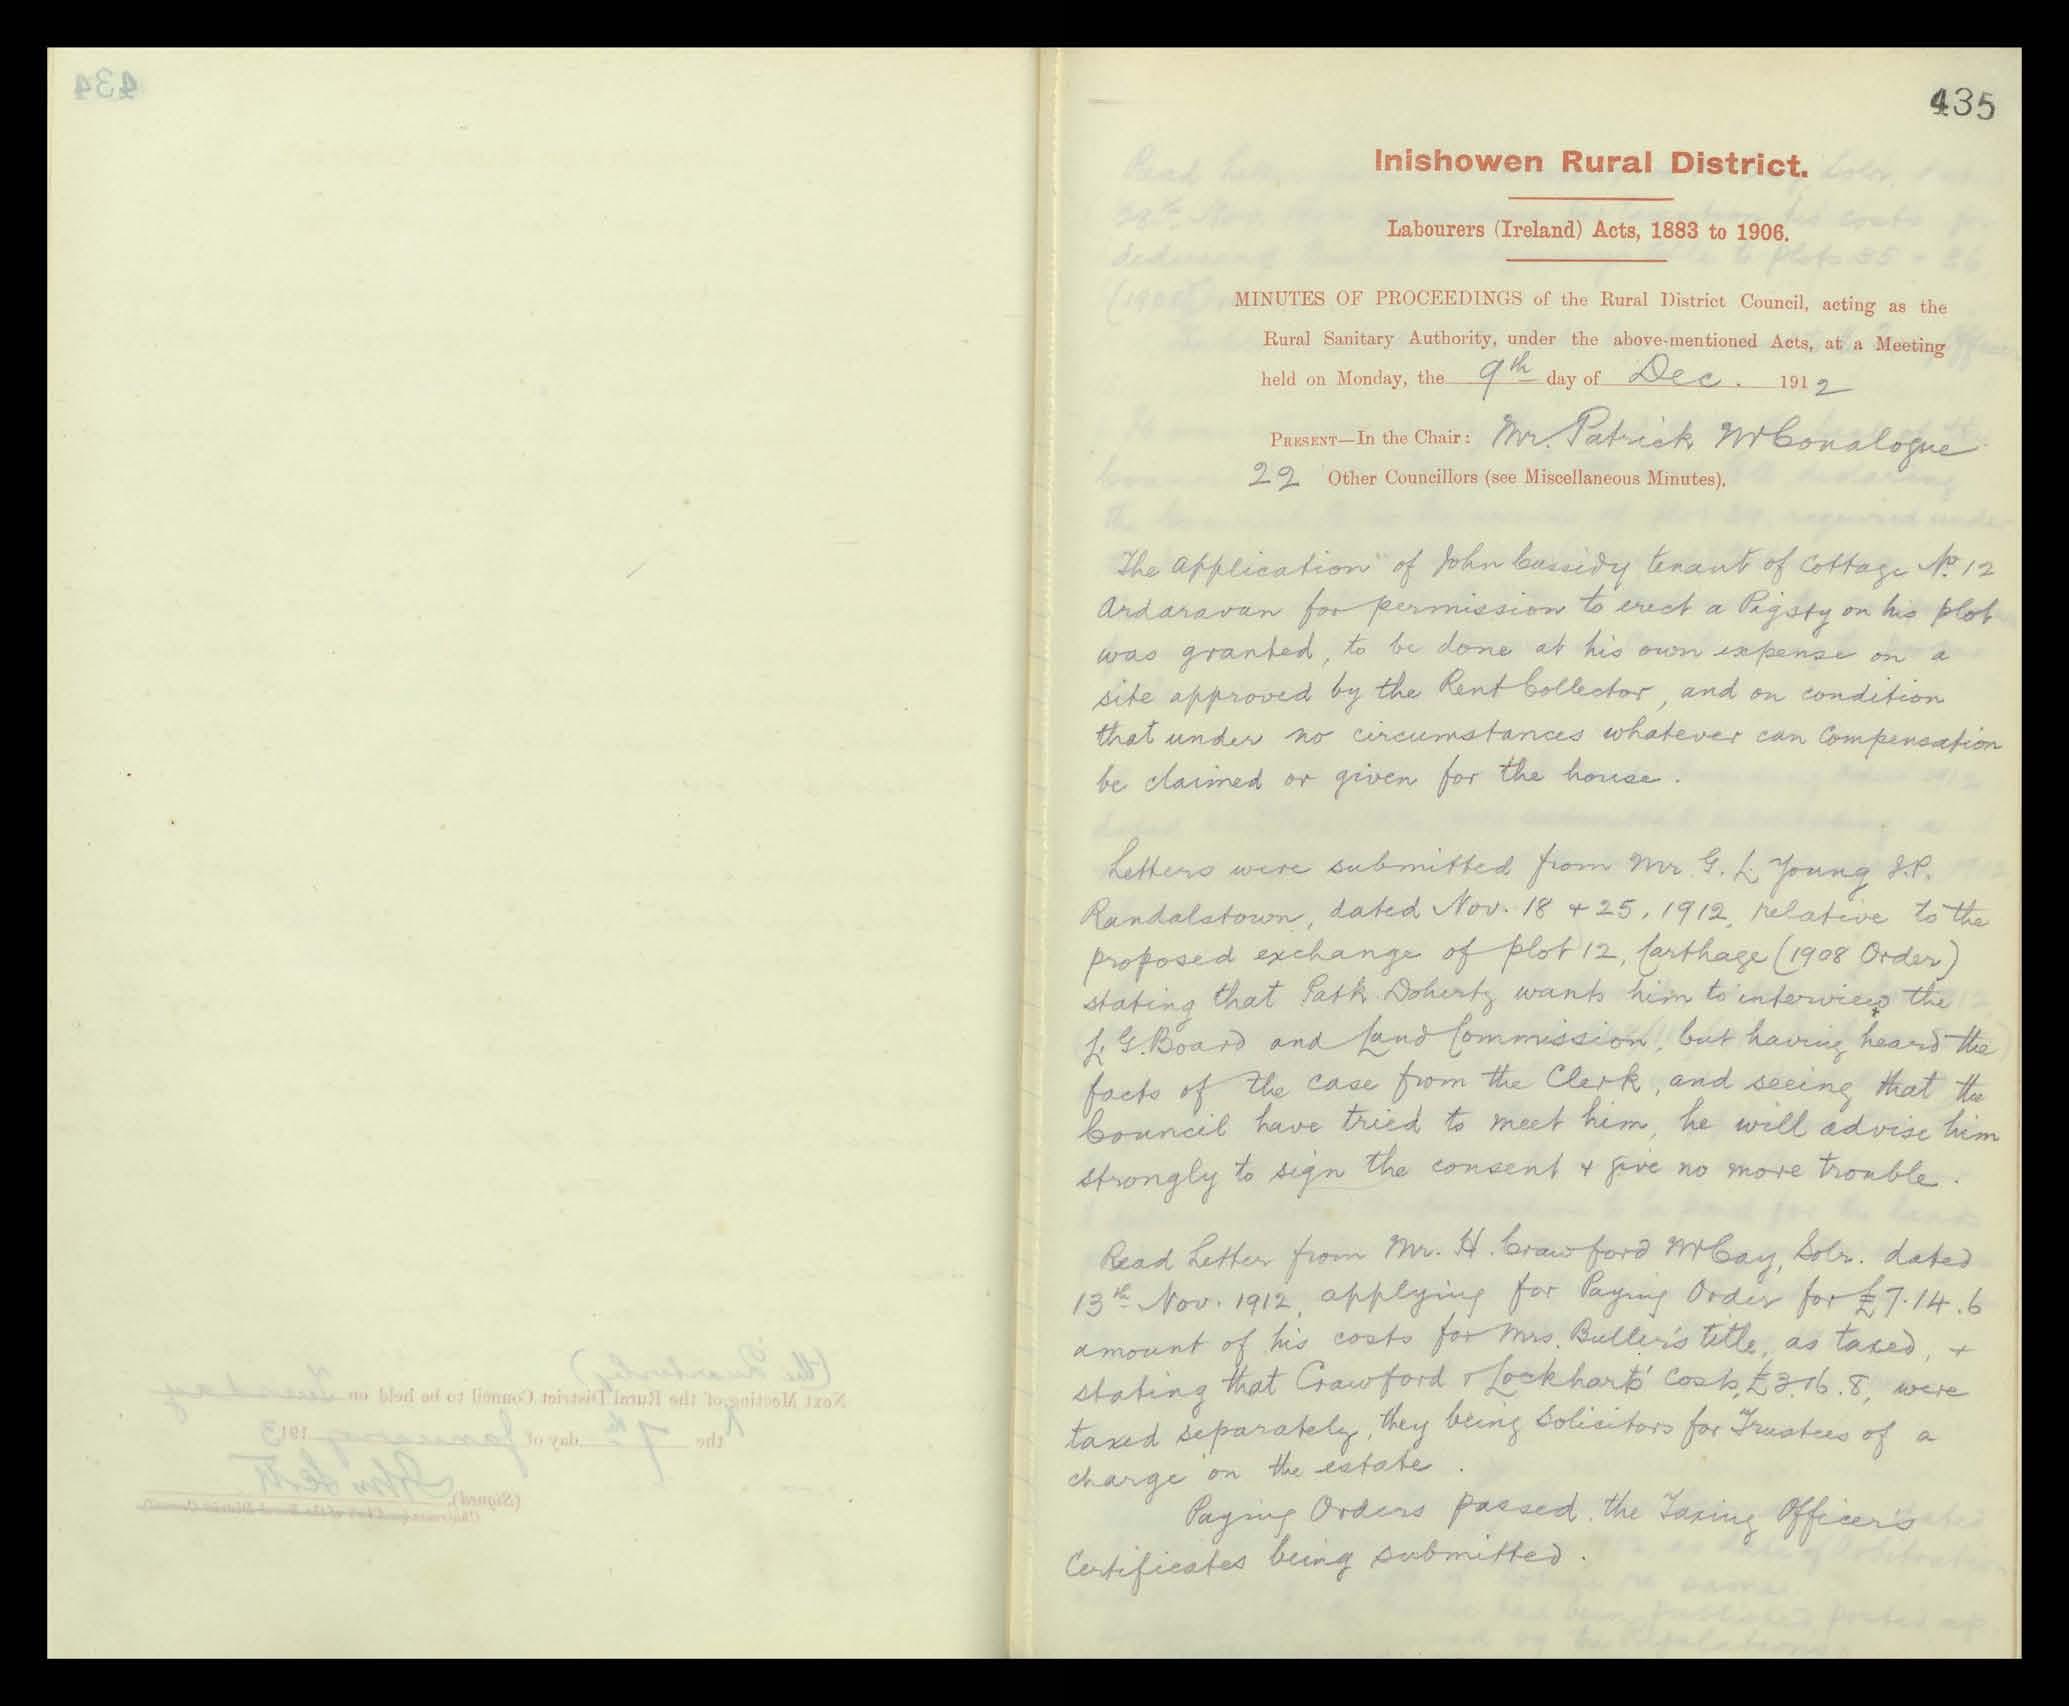 434
435
Inishowen Rural District.
Labourers (Ireland) Acts, 1883 to 1906.
MINUTES OF PROCEEDINGS of the Rural District Council, acting as the
Rural Sanitary Authority, under the above-mentioned Acts, at a Meeting
held on Monday, the 9th day of Dec. 1912
PRESENT—In the Chair: Mr. Patrick McConalogue
22 Other Councillors (see Miscellaneous Minutes).
The application of John Cassidy tenant of Cottage No. 12
Ardaravan for permission to erect a Pigsty on his plot
was granted, to be done at his own expense on a
site approved by the Rent Collector, and on condition
that under no circumstances whatever can compensation
be claimed or given for the house.
Letters were submitted from Mr G. L. Young J.P.
Randalstown, dated Nov. 18 + 25, 1912, relative to the
proposed exchange of plot 12, Carthage (1908 Order)
stating that Patk Doherty wants him to interview the
L. G. Board and Land Commission, but having heard the
facts of the case from the Clerk, and seeing that the
Council have tried to meet him, he will advise him
strongly to sign the consent + give no more trouble.
Read Letter from Mr. H. Crawford McCay, Solr. dated
13th Nov. 1912, applying for Paying Order for £7.14.6
amount of his costs for Mrs. Butler's title, as taxed, +
stating that Crawford & Lockharts' costs, £3.16.8, were
taxed separately, they being Solicitors for Trustees of a
charge on the estate.
Paying Orders passed, the Taxing Officer's
Certificates being submitted.
(the Quarterly)
Next Meeting of the Rural District Council to be held on Tuesday
the 7th day of January 1913
(Signed)